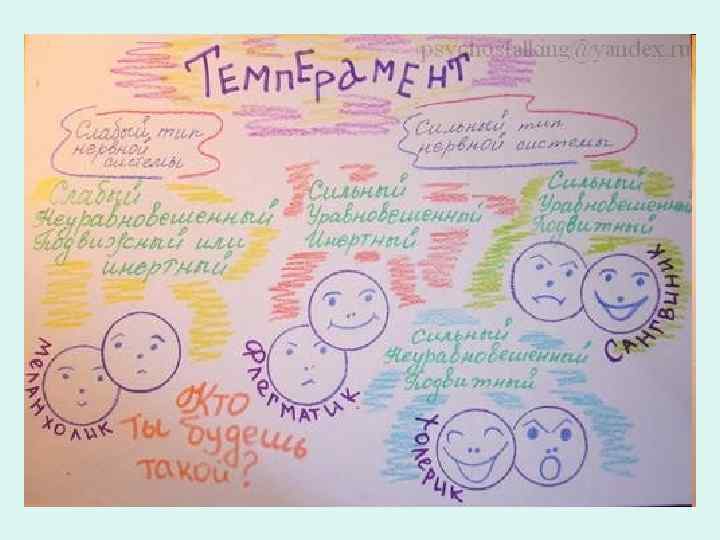 psychostalking@yandex.ru
ТЕМПЕРАМЕНТ
Слабый тип
нервной
системы
Сильный тип
нервной системы
Слабый
Неуравновешенный
Подвижный или
инертный
Сильный
Уравновешенный
Инертный
Сильный
Уравновешенный
Подвитный
МЕЛАНХОЛИК
ФЛЕГМАТИК
САНГВИНИК
Сильный
Неуравновешенный
Подвитный
ХОЛЕРИК
Кто
ты будешь
такой?